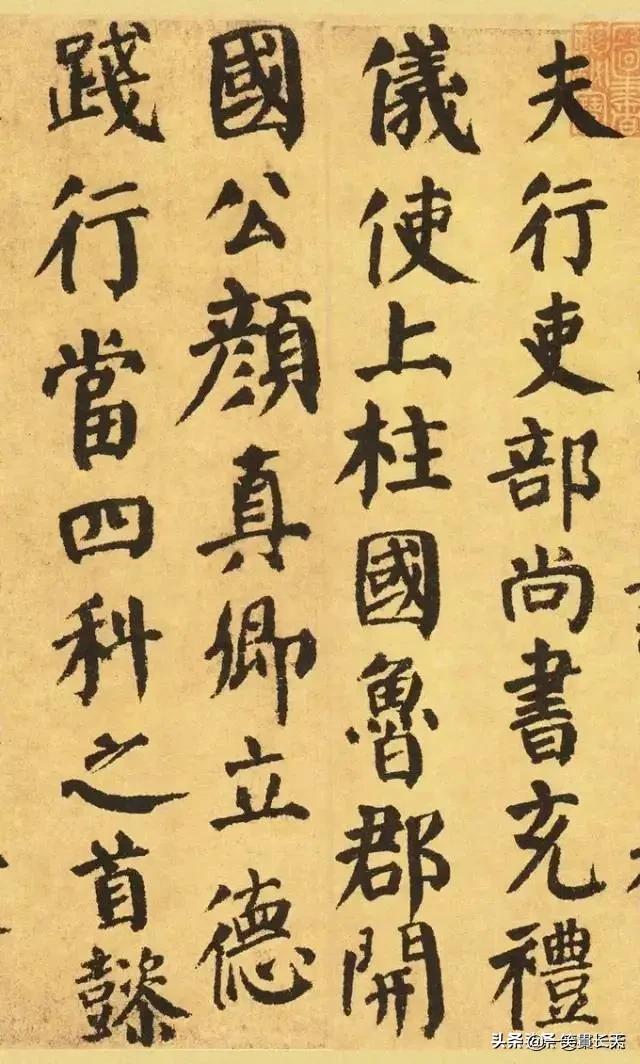 夫行吏部尚書充禮
儀使上柱國魯郡開
國公顏真卿立德
踐行當四科之首懿
头条